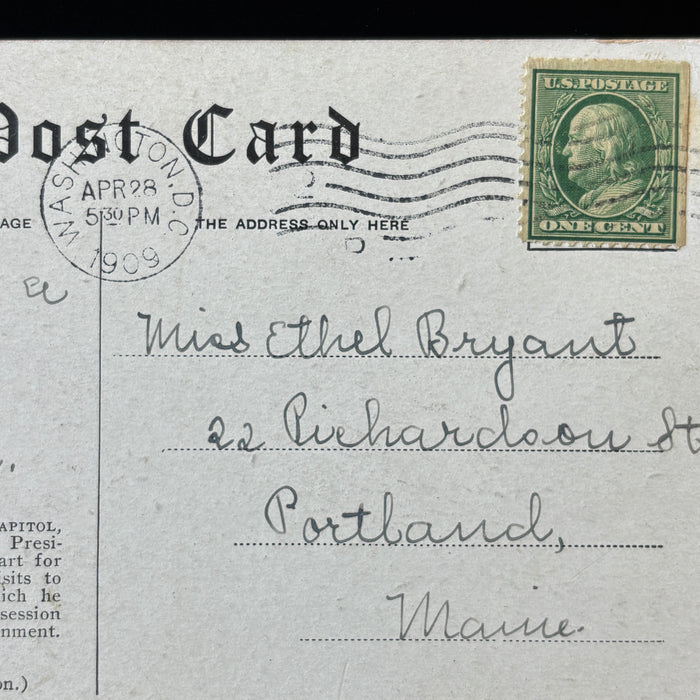 Post Card
U.S. POSTAGE
ONE CENT
WASHINGTON, D.C.
APR 28
5 30 PM
1909
AGE
THE ADDRESS ONLY HERE
Miss Ethel Bryant
22 Richardson St
Portland,
Maine.
APITOL,
Presi-
art for
isits to
ich he
session
nment.
on.)